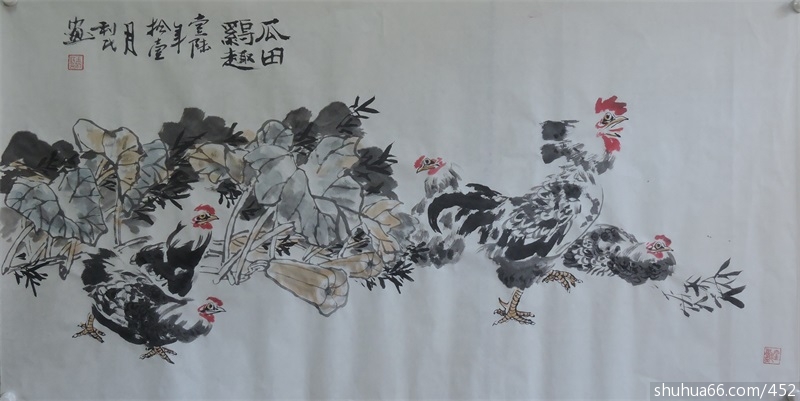 瓜田
鷄趣
壹陸
年
拾壹
月
利民
畫
shuhua66.com/452